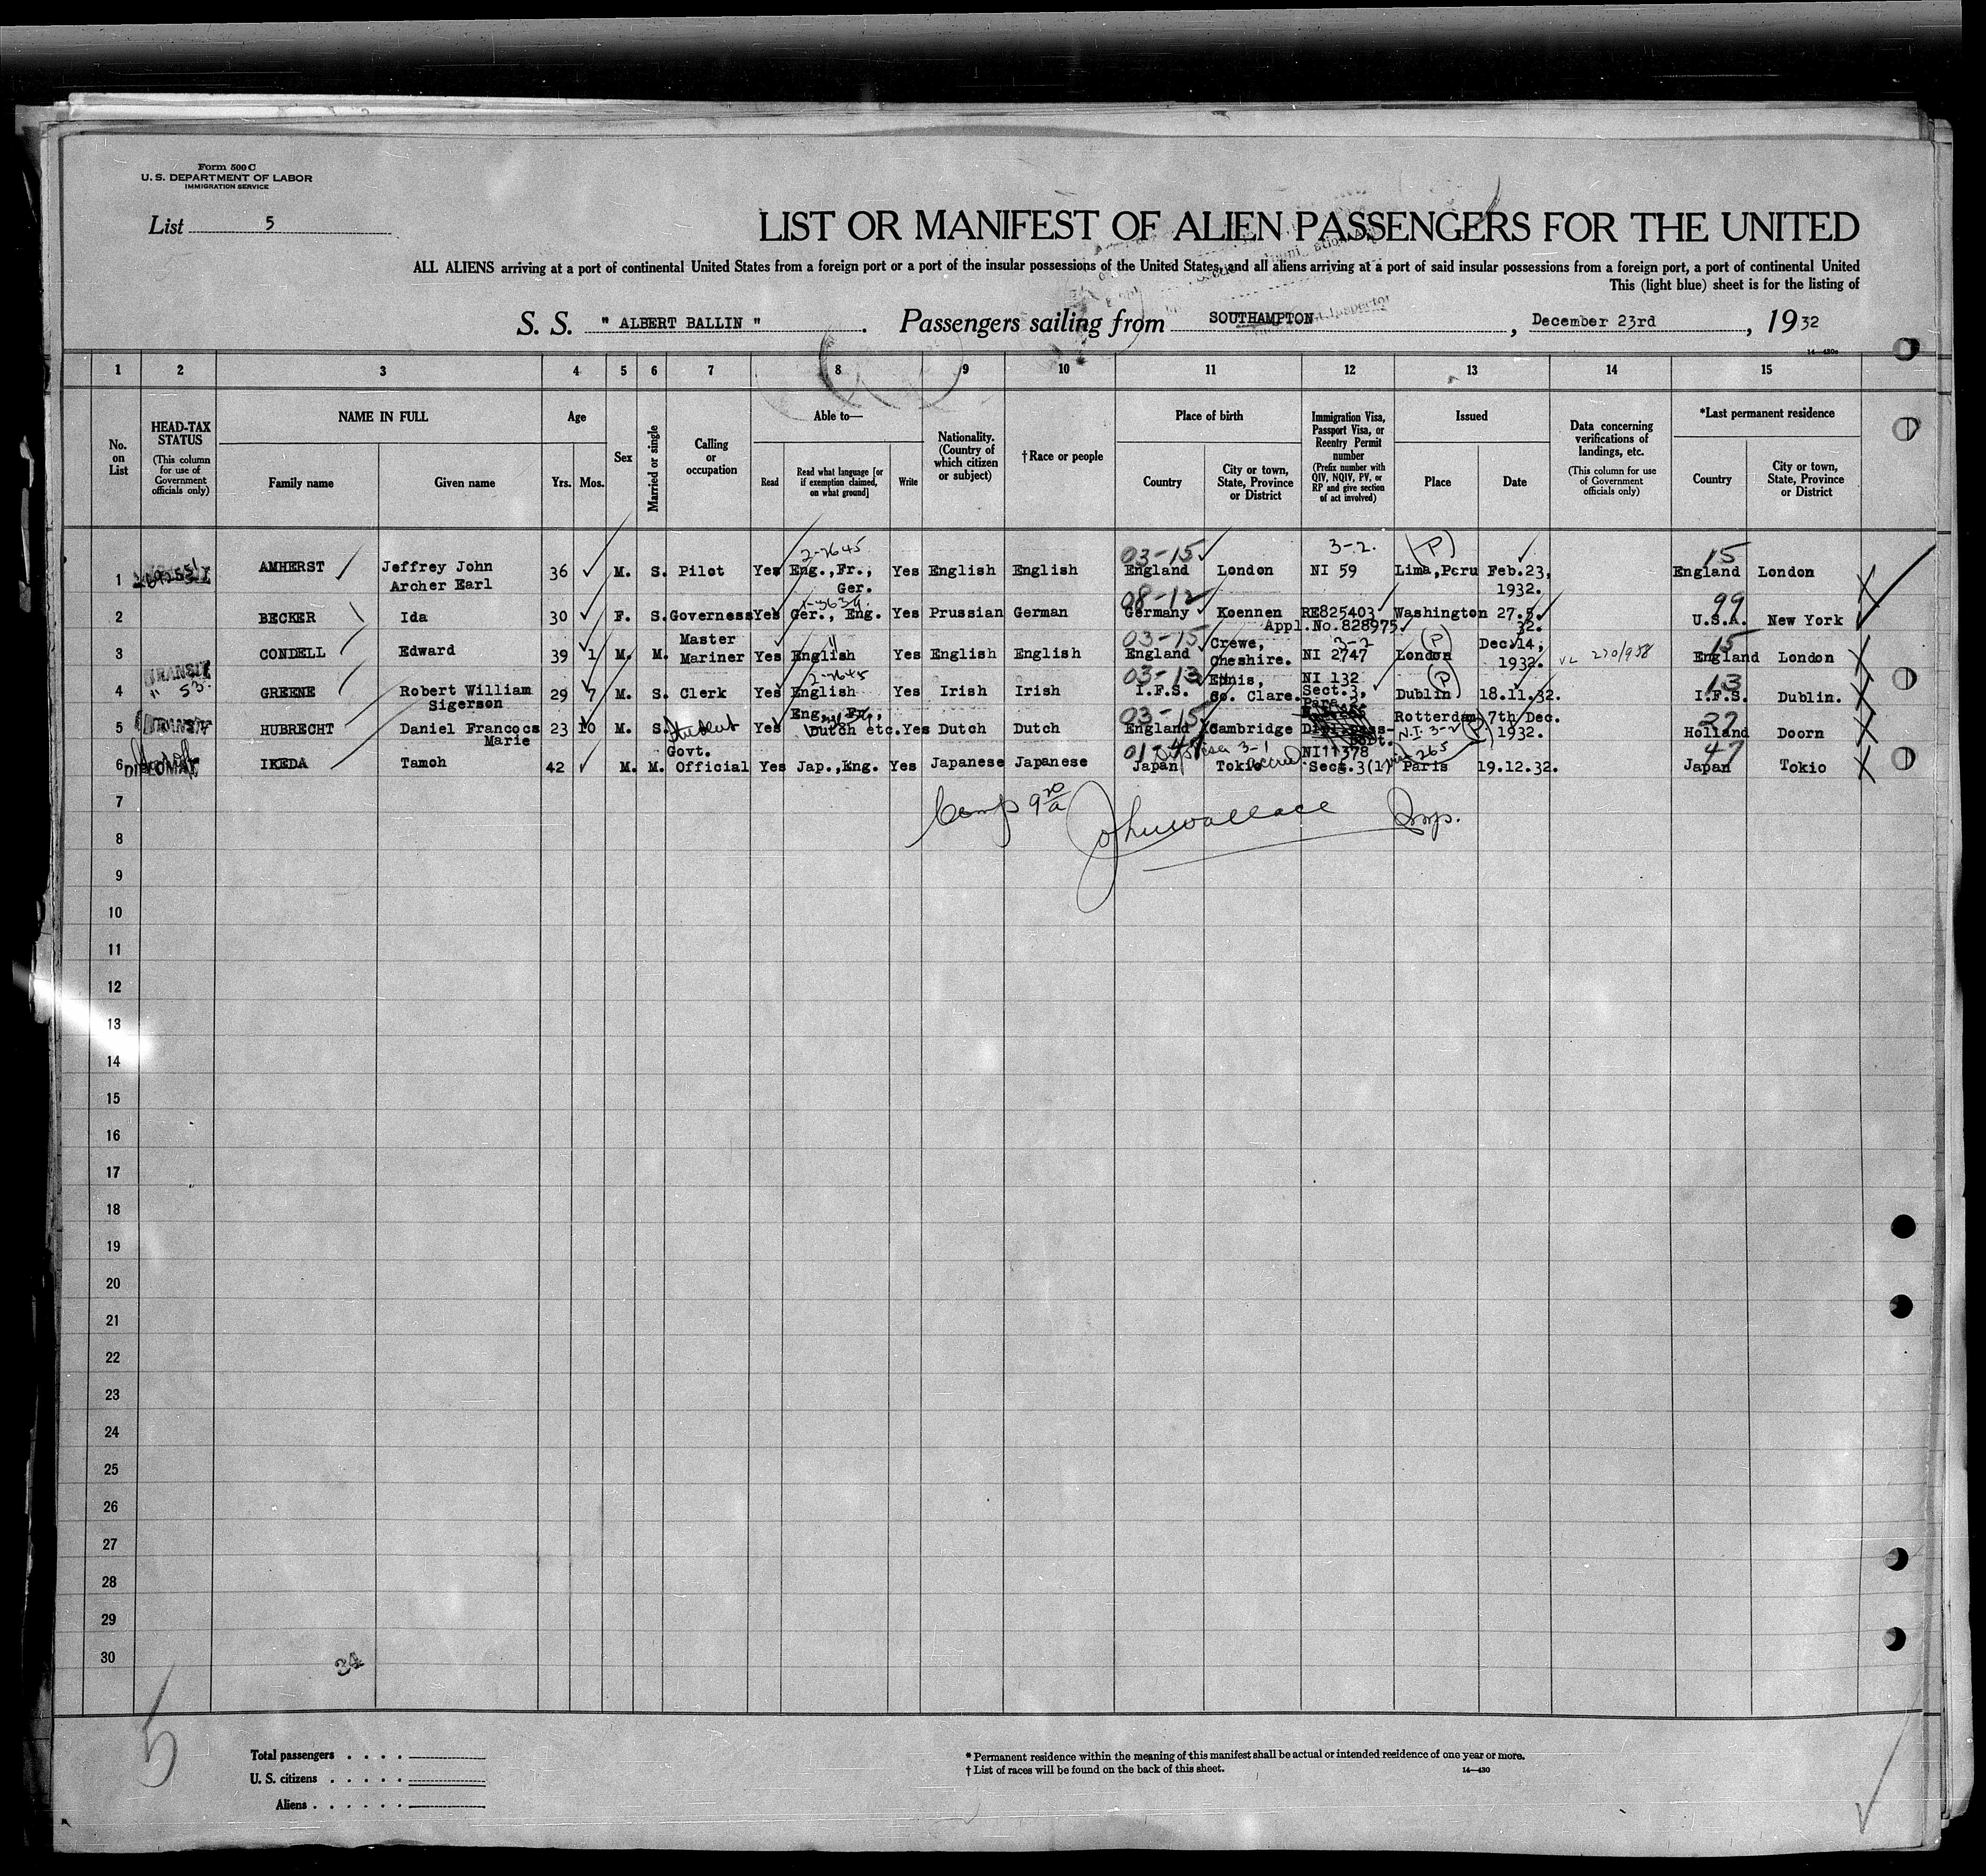 Form 500 C
U. S. DEPARTMENT OF LABOR
IMMIGRATION SERVICE
List 5
LIST OR MANIFEST OF ALIEN PASSENGERS FOR THE UNITED
ALL ALIENS arriving at a port of continental United States from a foreign port or a port of the insular possessions of the United States, and all aliens arriving at a port of said insular possessions from a foreign port, a port of continental United
This (light blue) sheet is for the listing of
S. S. " ALBERT BALLIN " . Passengers sailing from SOUTHAMPTON , December 23rd , 1932
14—430a
1 2 3 4 5 6 7 8 9 10 11 12 13 14 15
No. on List
HEAD-TAX STATUS
(This column for use of Government officials only)
NAME IN FULL
Family name Given name
Age
Yrs. Mos.
Sex
Married or single
Calling or occupation
Able to—
Read Read what language [or if exemption claimed, on what ground] Write
Nationality. (Country of which citizen or subject)
†Race or people
Place of birth
Country City or town, State, Province or District
Immigration Visa, Passport Visa, or Reentry Permit number
(Prefix number with QIV, NQIV, PV, or RP and give section of act involved)
Issued
Place Date
Data concerning verifications of landings, etc.
(This column for use of Government officials only)
*Last permanent residence
Country City or town, State, Province or District
2-2645 03-15 3-2. (P) 15
1 AMHERST Jeffrey John Archer Earl 36 M. S. Pilot Yes Eng.,Fr., Ger. Yes English English England London NI 59 Lima,Peru Feb.23, 1932. England London
08-12 99
2 BECKER Ida 30 F. S. Governess Yes Ger., Eng. Yes Prussian German Germany Koennen RE825403 Appl.No.828975. Washington 27.5. 32. U.S.A. New York
03-15 3-2 (P) 15
3 CONDELL Edward 39 1 M. M. Master Mariner Yes English Yes English English England Crewe, Cheshire. NI 2747 London Dec.14, 1932. England London
TRANSIT 2-2645 03-13 (P) 13
4 GREENE Robert William Sigerson 29 7 M. S. Clerk Yes English Yes Irish Irish I.F.S. Ennis, Co. Clare. NI 132 Sect.3, Para. Dublin 18.11.32. I.F.S. Dublin.
03-15 27
5 HUBRECHT Daniel Francocs Marie 23 10 M. S. Student Yes Eng., Fr., Dutch etc. Yes Dutch Dutch England Cambridge Rotterdam N.I. 3-2 (P) 7th Dec. 1932. Holland Doorn
47
6 DIPLOMAT IKEDA Tamoh 42 M. M. Govt. Official Yes Jap.,Eng. Yes Japanese Japanese Japan Tokio NI11378 Sect.3(1) Paris 19.12.32. Japan Tokio
7
John Wallace Insp.
8
9
10
11
12
13
14
15
16
17
18
19
20
21
22
23
24
25
26
27
28
29
30
34
5
Total passengers
U. S. citizens
Aliens
* Permanent residence within the meaning of this manifest shall be actual or intended residence of one year or more.
† List of races will be found on the back of this sheet.
14—430